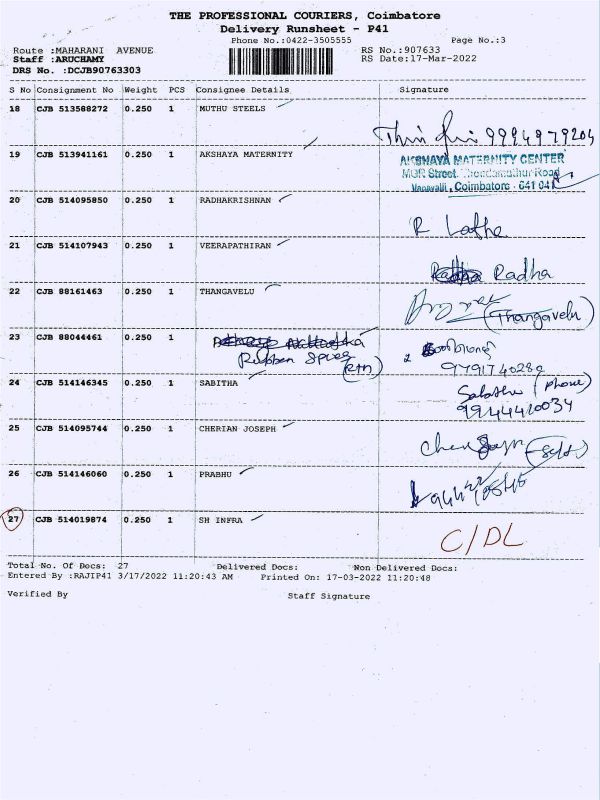 THE PROFESSIONAL COURIERS, Coimbatore
Delivery Runsheet - P41
Phone No.:0422-3505555
Page No.:3
Route :MAHARANI AVENUE
RS No.:907633
Staff :ARUCHAMY
RS Date:17-Mar-2022
DRS No. :DCJB90763303
S No Consignment No Weight PCS Consignee Details Signature
18 CJB 513588272 0.250 1 MUTHU STEELS
9994979204
19 CJB 513941161 0.250 1 AKSHAYA MATERNITY
AKSHAYA MATERNITY CENTER
MGR Street, Thondamuthur Road
Vadavalli, Coimbatore - 641 041
20 CJB 514095850 0.250 1 RADHAKRISHNAN
R Latha
21 CJB 514107943 0.250 1 VEERAPATHIRAN
Radha
22 CJB 88161463 0.250 1 THANGAVELU
(Thangavelu)
23 CJB 88044461 0.250 1
(RTN)
24 CJB 514146345 0.250 1 SABITHA
(Phone)
9944410034
25 CJB 514095744 0.250 1 CHERIAN JOSEPH
26 CJB 514146060 0.250 1 PRABHU
27 CJB 514019874 0.250 1 SH INFRA
C/DL
Total No. Of Docs: 27 Delivered Docs: Non Delivered Docs:
Entered By :RAJIP41 3/17/2022 11:20:43 AM Printed On: 17-03-2022 11:20:48
Verified By Staff Signature